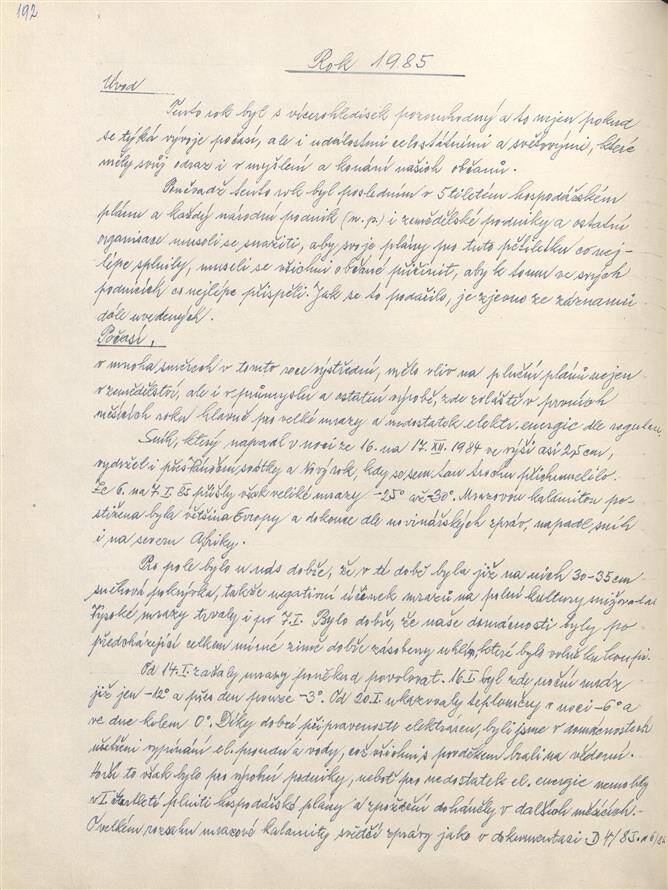 192
Rok 1985
Úvod
Tento rok byl s vícero hledisek pozoruhodný a to nejen pokud
se týká vývoje počasí, ale i událostmi celostátními a světovými, které
měly svůj odraz i v myšlení a konání našich občanů.
Poněvadž tento rok byl posledním v 5tiletém hospodářském
plánu a každý národní podnik (n.p.) i zemědělské podniky a ostatní
organisace museli se snažiti, aby svoje plány pro tuto pětiletku co nej-
lépe splnily, museli se všichni občané přičinit, aby k tomu ve svých
podnicích co nejlépe přispěli. Jak se to podařilo, je zjevno ze záznamů
dále uvedených.
Počasí,
v mnoha směrech v tomto roce výstřední, mělo vliv na plnění plánů nejen
v zemědělství, ale i v průmyslu a ostatní výrobě, zde zvláště v prvních
měsících roku hlavně pro velké mrazy a nedostatek elektr. energie dle regulace.
Sníh, který napadl v noci ze 16. na 17. XII. 1984 ve výši asi 25 cm,
vydržel i přes vánoční svátky a Nový rok, kdy sem tam trochu přichumelilo.
Ze 6. na 7. I. 85 přišly však veliké mrazy -25° až -30°. Mrazovou kalamitou po-
stižena byla většina Evropy a dokonce dle novinářských zpráv, napadl sníh
i na severu Afriky.
Pro pole bylo u nás dobře, že v té době byla již na nich 30-35 cm
sněhová pokrývka, takže negativní účinek mrazů na polní kultury
Vysoké mrazy trvaly i po 7. I. Bylo dobře, že naše domácnosti byly po
předcházející celkem mírné zimě dobře zásobeny uhlím, které bylo volně ku koupi.
Od 14. I. začaly mrazy poněkud povolovat. 16. I. byl zde noční mráz
již jen -12° a přes den pouze -3°. Od 20. I. ukazovaly teploměry v noci -6° a
ve dne kolem 0°. Díky dobré připravenosti elektráren, byli jsme v domácnostech
ušetřeni vypínání el. proudu a vody, což všichni s povděkem brali na vědomí.
Horší to však bylo pro výrobní podniky, neboť pro nedostatek el. energie nemohly
v I. čtvrtletí plniti hospodářské plány a zpoždění doháněly v dalších měsících.-
O velkém rozsahu mrazové kalamity svědčí zprávy jako v dokumentaci D 4/85